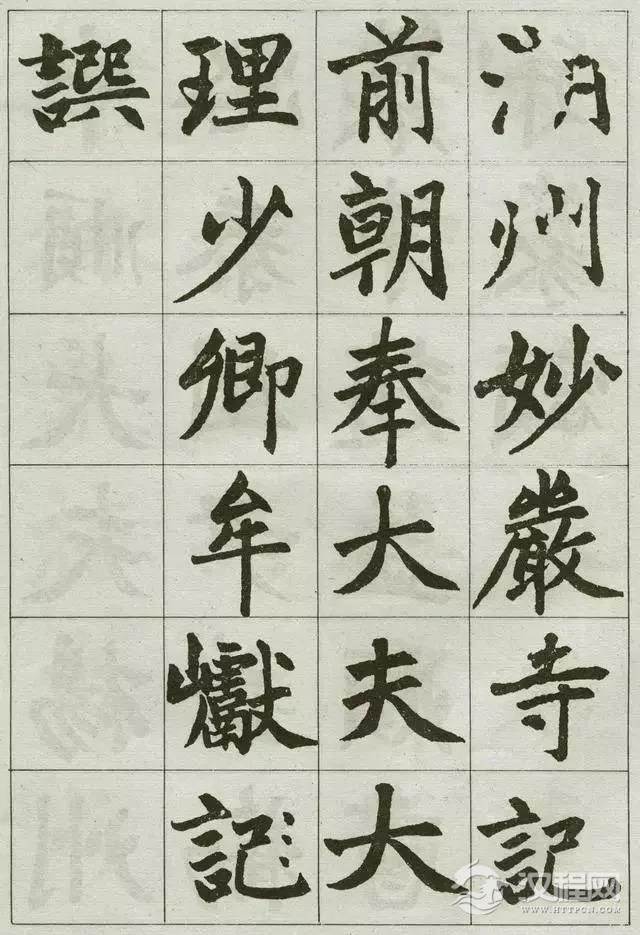 湖州妙嚴寺記
前朝奉大夫大
理少卿牟巘記
譔
汉程网
WWW.HTTPCN.COM